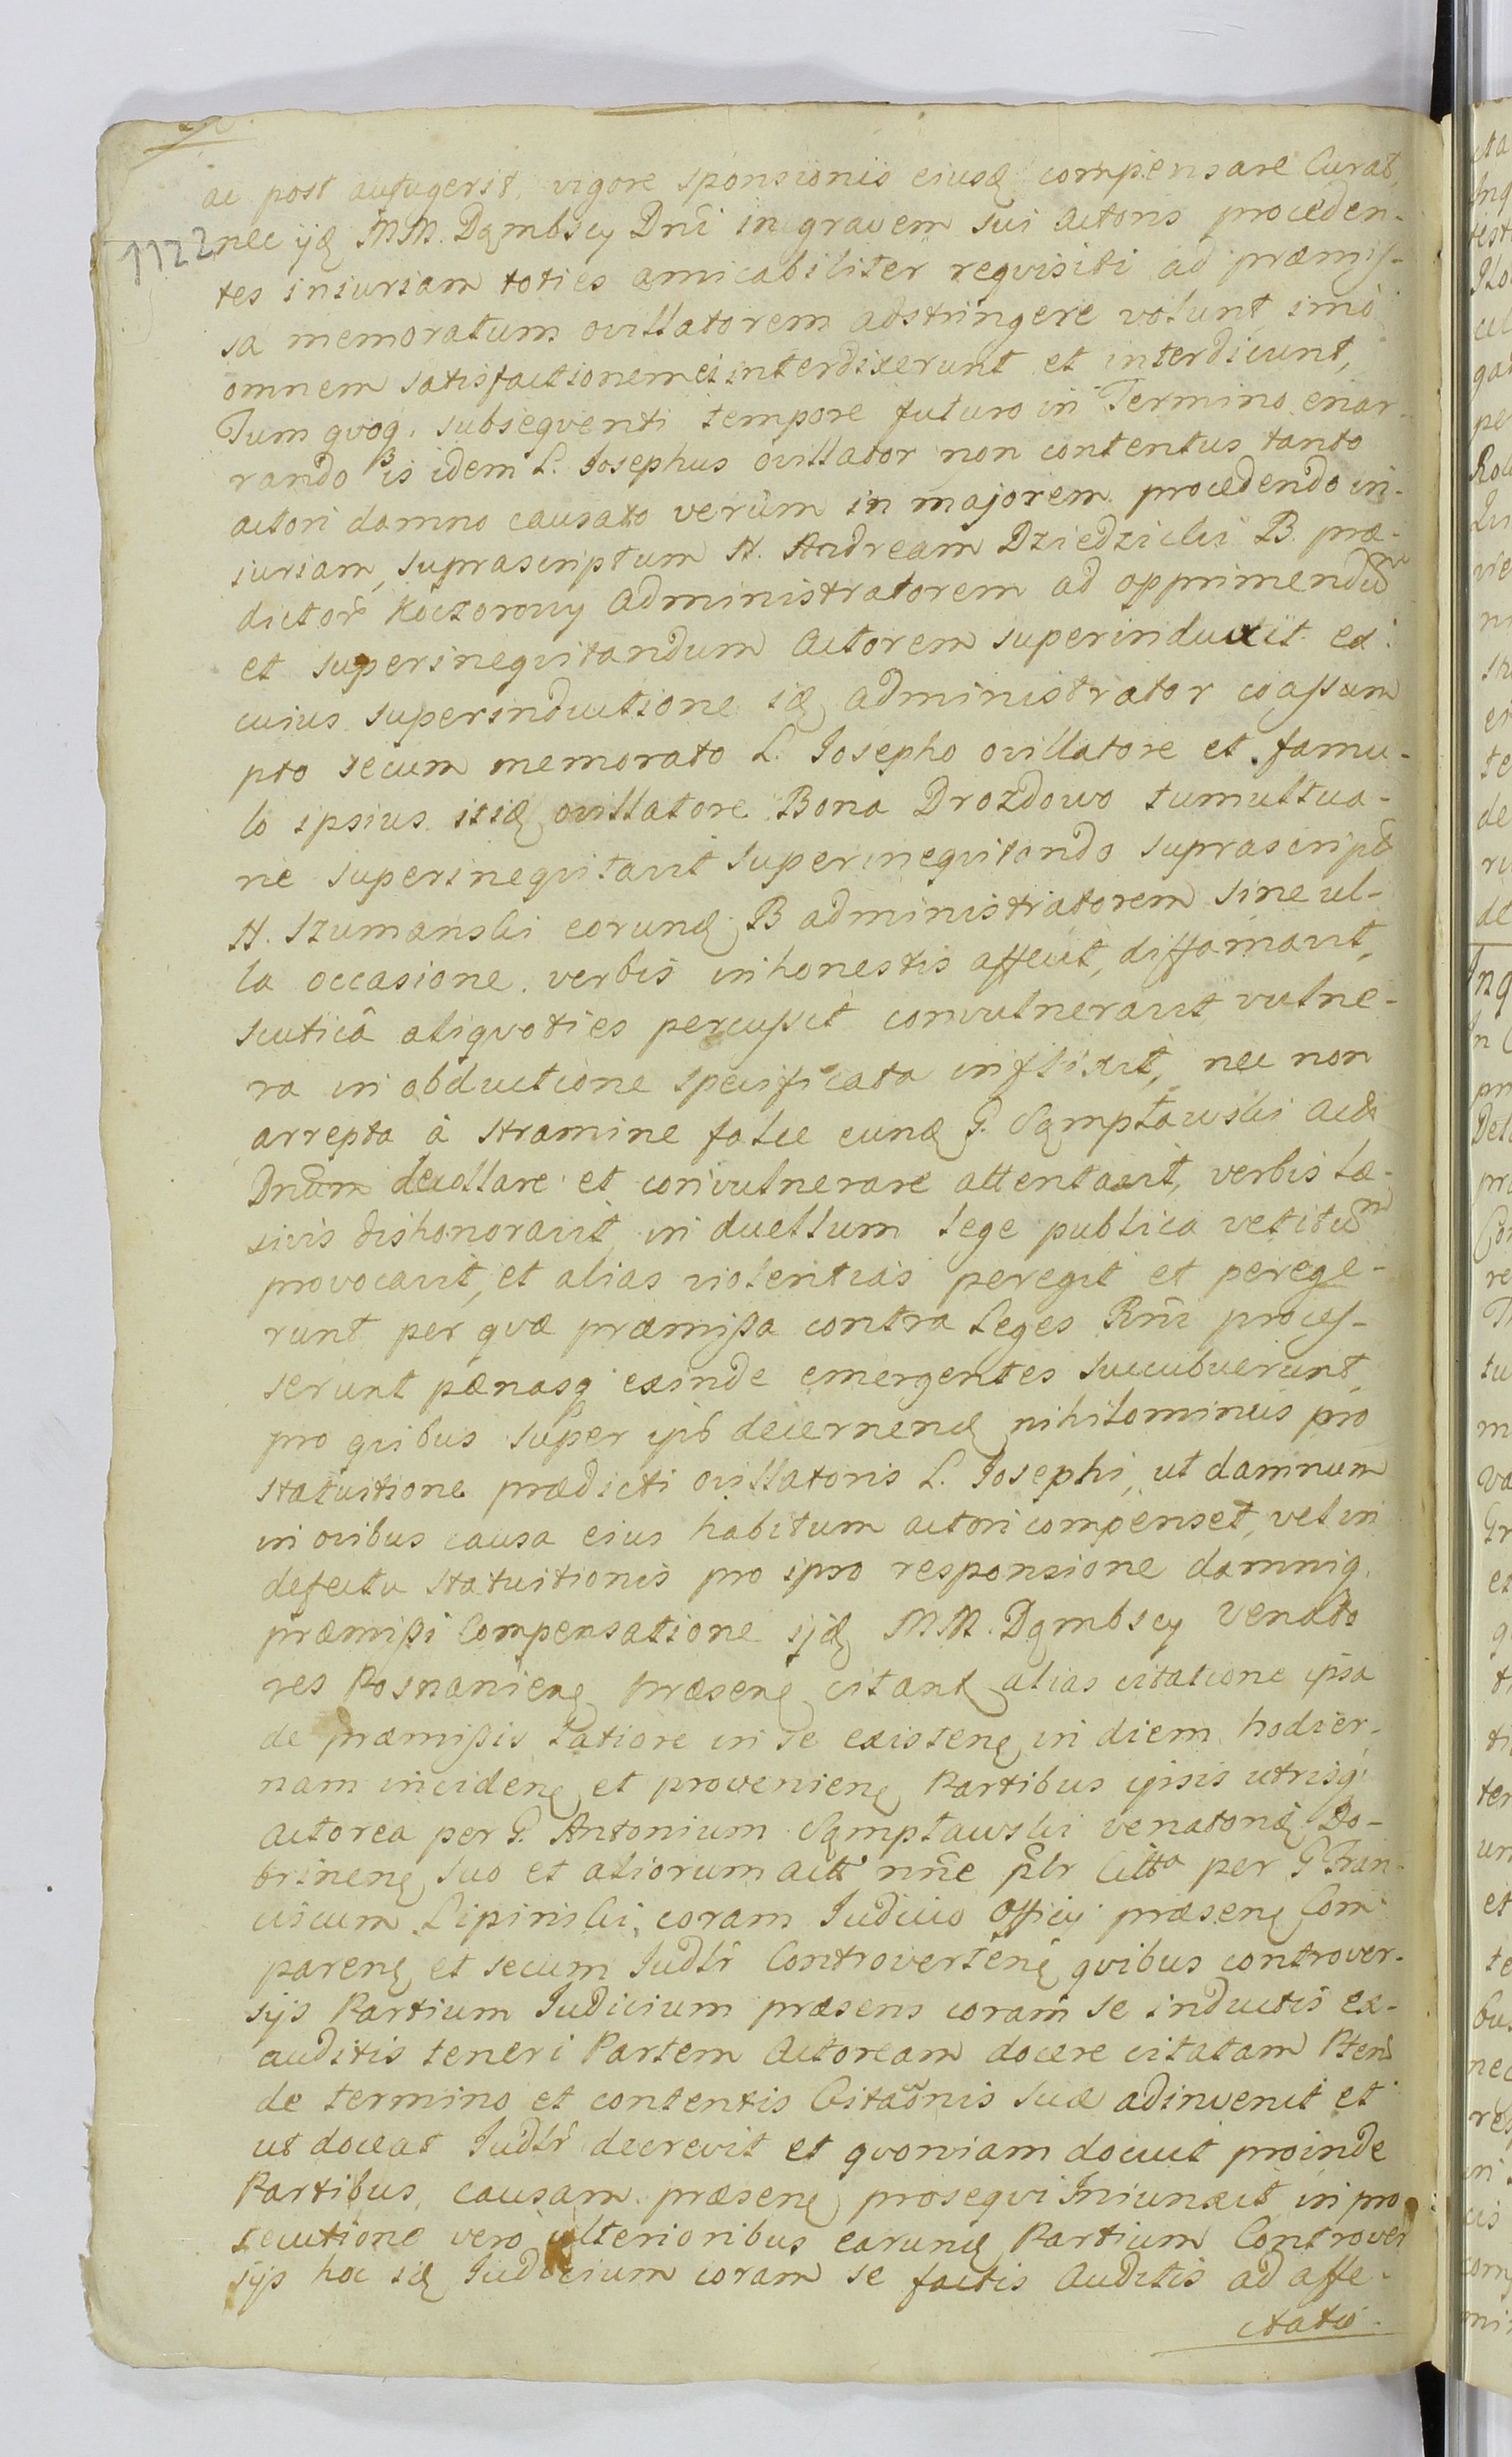 ac post aufugerit, vigore sponsionis eiusq compensare Curat,
1122
nec ijq MM. Dąmbscy Dnĩ in gravem sui actoris proceden-
tes iniuriam toties amicabiliter reqvisiti ad præmis-
sa memoratum ovillatorem adstringere volunt, imò
omnem satisfactionem ei interdixerunt et interdicunt,
Tum qvoq. subseqventi tempore futuro in Termino enar-
rando is idem L. Josephus ovillator non contentus tanto
actori damno causato verùm in majorem procedendo in-
iuriam, suprascriptum N. Andream Dziedzicki B. præ-
dictor Koczorowy Administratorem ad opprimendũ
et superineqvitandum Actorem superinduxit ex
cuius superinductione iq administrator coassum
pto secum memorato L. Josepho ovillatore et famu-
lo ipsius itiq ovillatore Bona Drozdowo tumultua-
rie superineqvitavit superineqvitando suprascript
N. Szumanski eorunq B administratorem sine ul-
la occasione verbis inhonestis affecit, diffamavit,
scuticâ aliqvoties percussit convulneravit vulne-
ra in obductione specificata inflixit, nec non
arrepta à stramine falce eunq G. Sąmpławski Act
Dnũm decollare et convulnerare attentavit, verbis læ-
sivis dishonoravit, in duellum lege publica vetitũ
provocavit, et alias violentias peregit et perege-
runt per qvæ præmissa contra Leges Rnĩ proces-
serunt pænasq exinde emergentes succubuerunt,
pro qvibus super ijs decernenq nihilominus pro
statuitione prædicti ovillatoris L. Josephi, ut damnum
in ovibus causa eius habitum actori compenset, vel in
defectu statuitionis pro ipso responsione damniq.
præmissi Compensatione ijq MM. Dąmbscy Venato
res Posnanienq præsenq citant alias citatione ipsa
de præmissis latiore in se existenq in diem hodier-
nam incidenq et provenienq Partibus ipsis utrisq.
Actorea per G. Antonium Sąmpławski venatonq Do-
brinenq suo et aliorum actt nñe plr Citta per G Fran-
ciscum Lipinski, coram Judicio Officij præsenq Com
parenq et secum Judlr Controvertenq qvibus controver-
sijs Partium Judicium præsens coram se inductis ex-
auditis teneri Partem Actoream docere citatam Pten
de termino et contentis Citaõnis suæ adinvenit et
ut doceat Judlr decrevit et qvoniam docuit proinde
Partibus, causam præsenq proseqvi Iniunxit, in pro
secutione verò ulterioribus earunq Partium Controver
sijs hoc iq Judicium coram se factis Auditis ad affe-
ctatio-